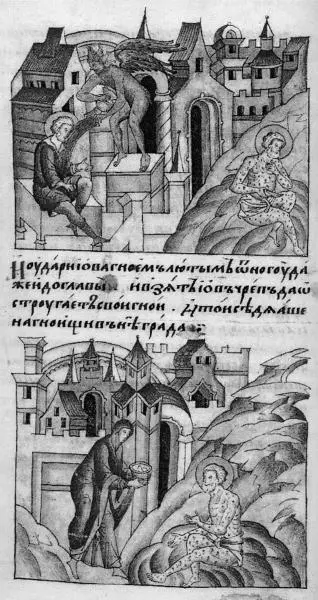 И оудари іова гноемъ лютымъ ѿ ногоу да
же и до главы . и взѧтъ іовъ чрепъ да ѡ
строугаетъ свои гнои . И тои сѣдѧше
на гноищи внѣ града